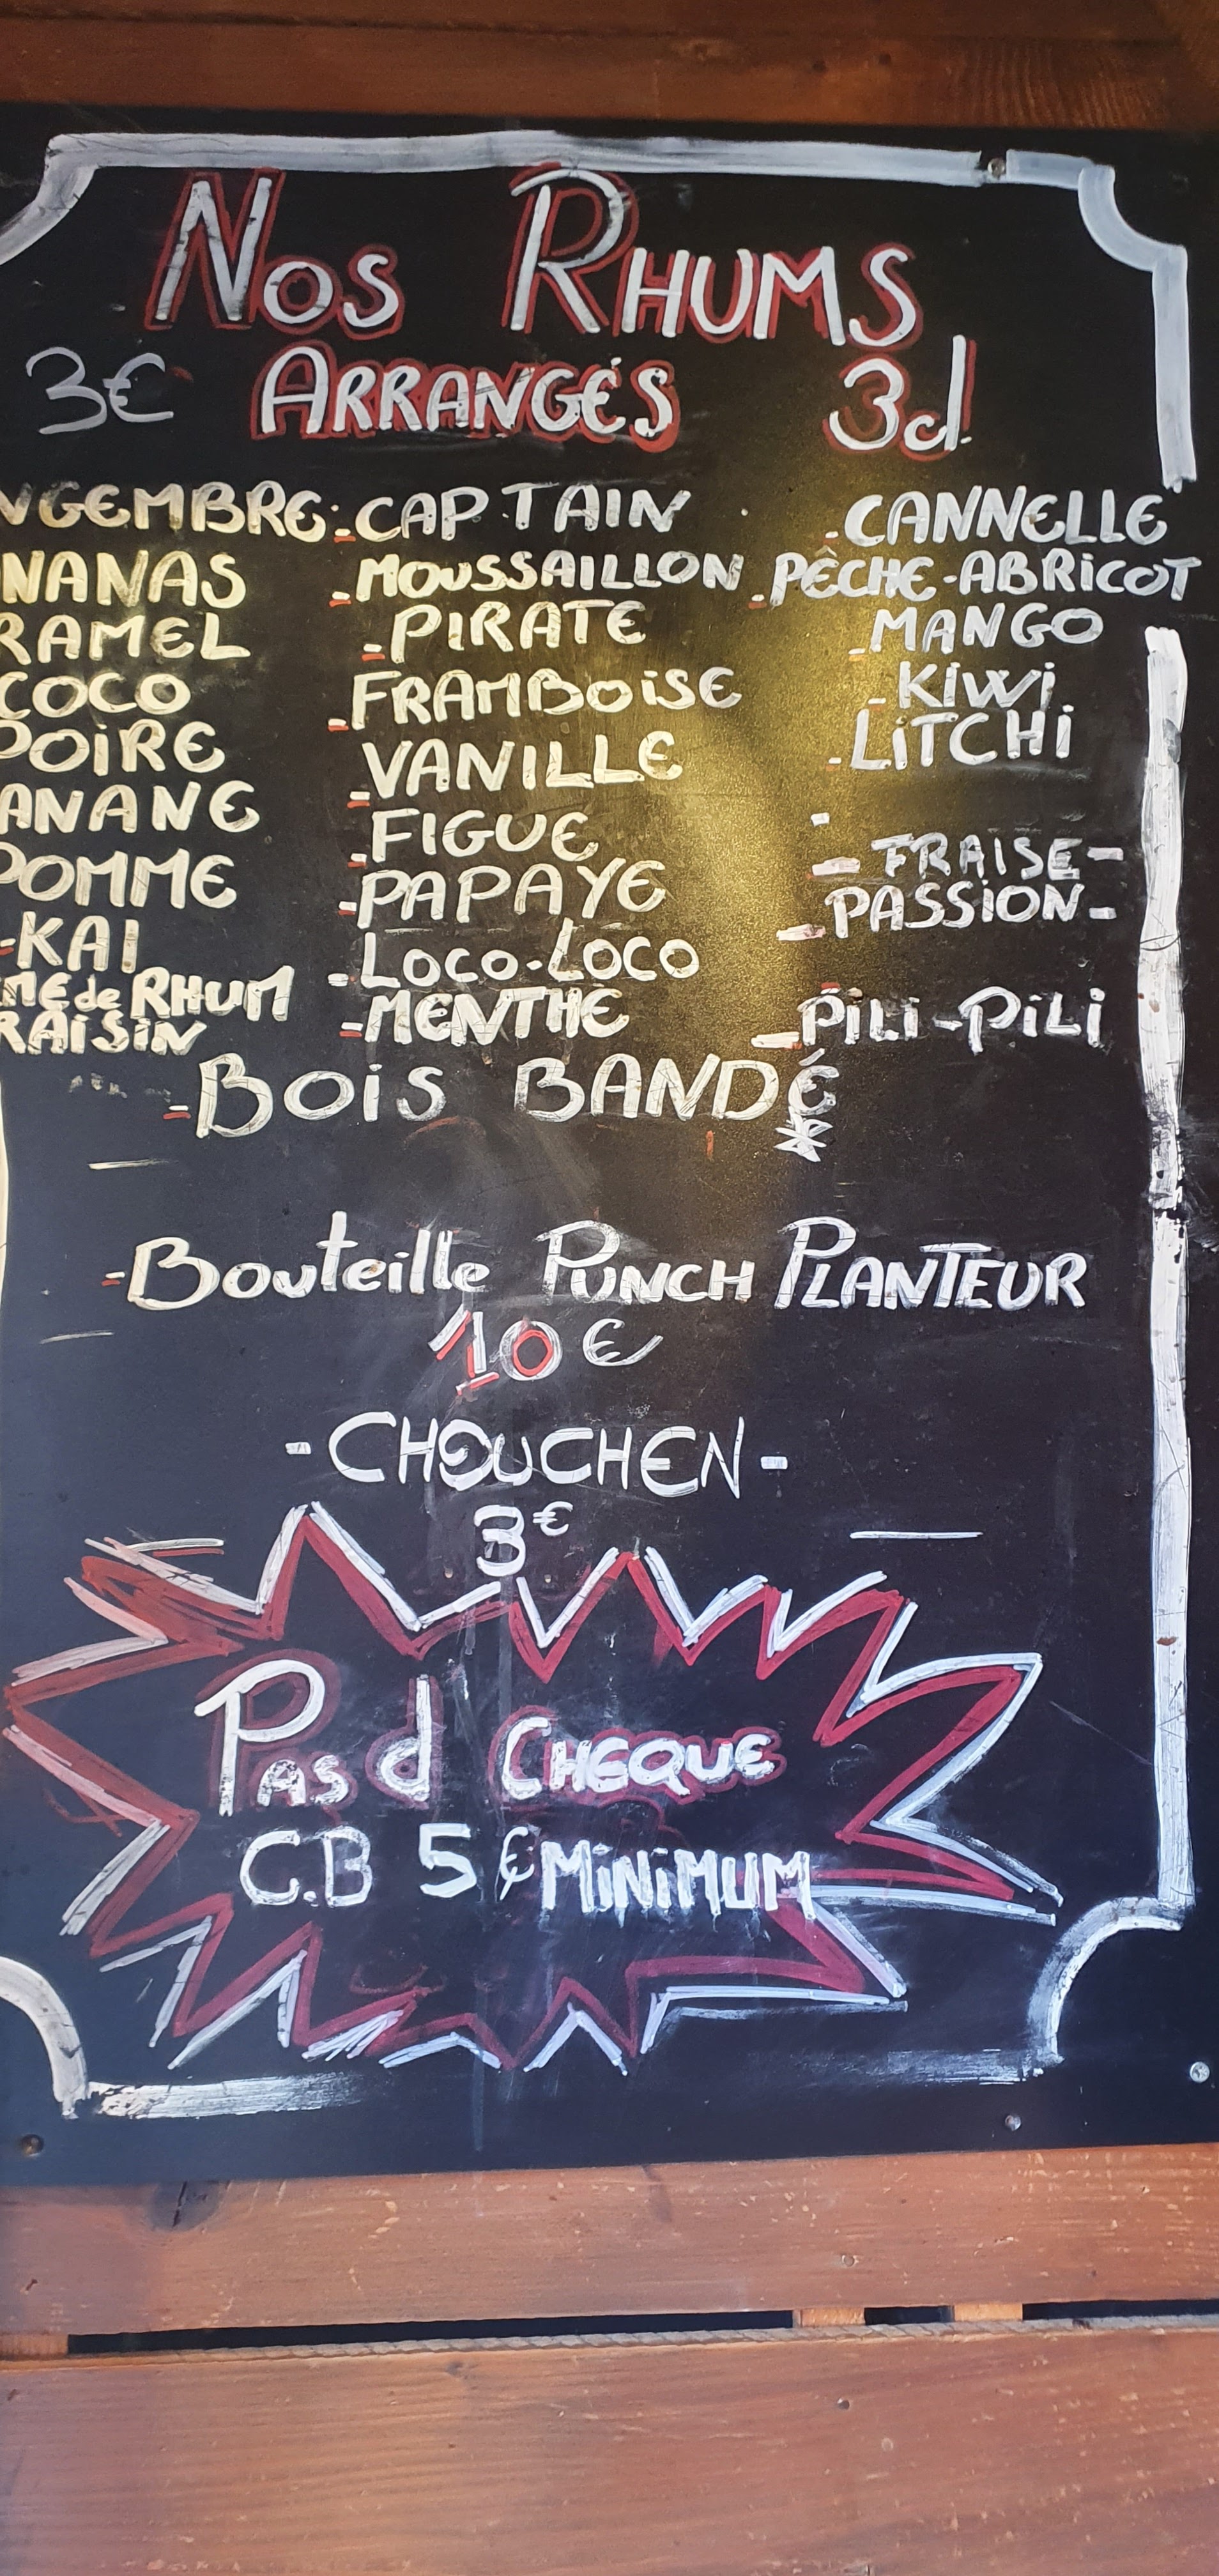 Nos RHUMS
3€ ARRANGÉS 3cl
NGEMBRE
NANAS
RAMEL
COCO
POIRE
ANANE
POMME
-KAI
ME de RHUM
RAISIN
-CAPTAIN
-MOUSSAILLON
-PIRATE
-FRAMBOISE
-VANILLE
-FIGUE
-PAPAYE
-LOCO-LOCO
-MENTHE
-CANNELLE
-PÊCHE-ABRICOT
-MANGO
-KIWI
-LITCHI
-FRAISE-
-PASSION-
-PILI-PILI
-BOIS BANDÉ
*
-Bouteille PUNCH PLANTEUR
10 €
-CHOUCHEN-
3€
PAS d CHEQUE
C.B 5 € MINIMUM